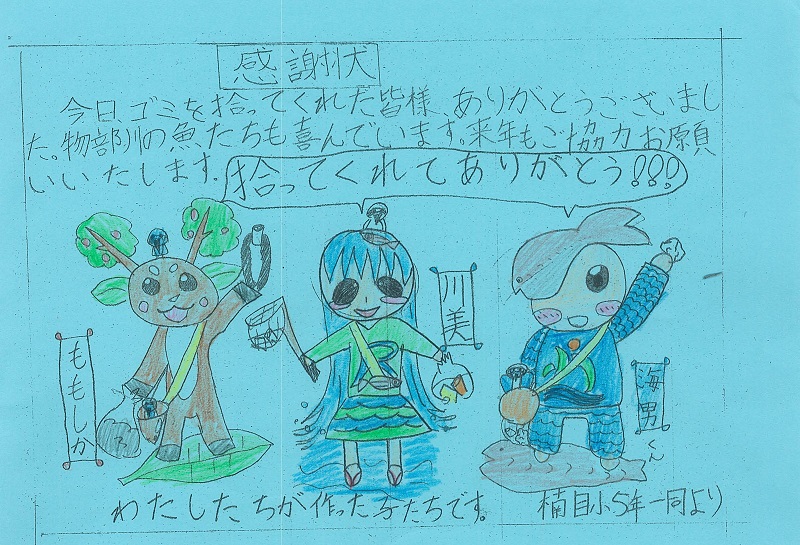 感謝状
今日、ゴミを拾ってくれた皆様、ありがとうございまし
た。物部川の魚たちも喜んでいます。来年もご協力お願
いいたします。
拾ってくれてありがとう!!!
ももしか
川美
海男くん
わたしたちが作った子たちです。
楠目小5年一同より